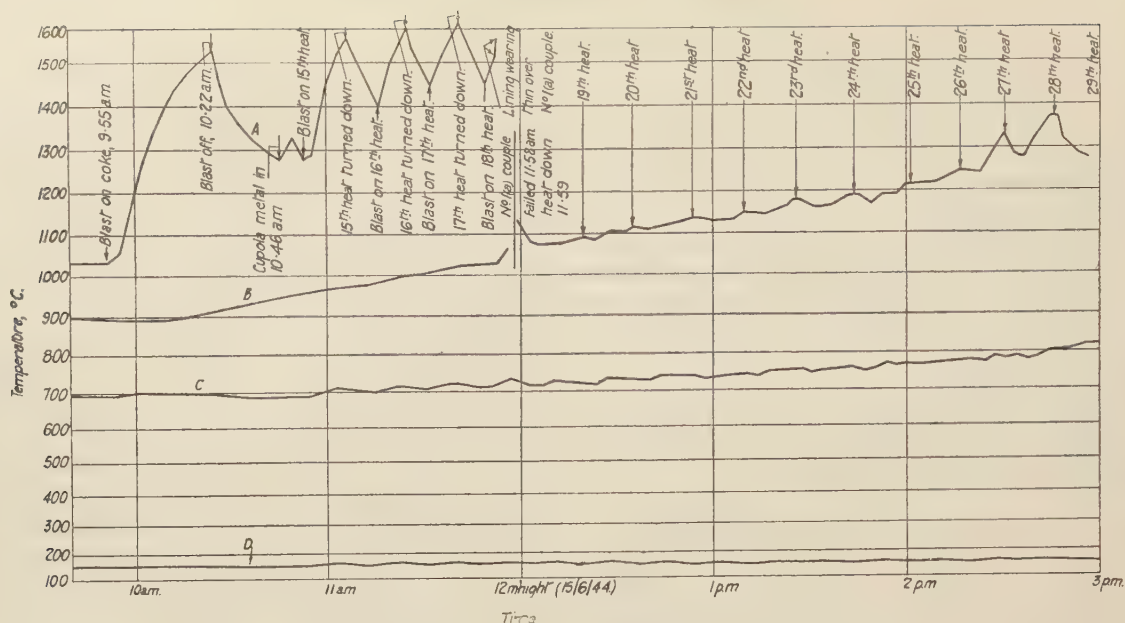 1600
1500
1400
1300
1200
1100
1000
900
800
700
600
500
400
300
200
100
Temperature, °C.
Blast on coke, 9.55 a.m
Blast off, 10.22 a.m.
A
Cupola metal in
10.46 am
Blast on 15th heat.
15th heat turned down.
Blast on 16th heat.
16th heat turned down.
Blast on 17th heat.
17th heat turned down.
Blast on 18th heat.
No 1(a) couple Lining wearing
Failed 11.58am Thin over
heat down No 1(a) couple.
11.59
19th heat.
20th heat
21st heat
22nd heat
23rd heat.
24th heat
25th heat.
26th heat.
27th heat.
28th heat.
29th heat.
B
C
D
10am.
11am
12mnight (15/6/44.)
1pm
2 p.m
3 p.m.
Time